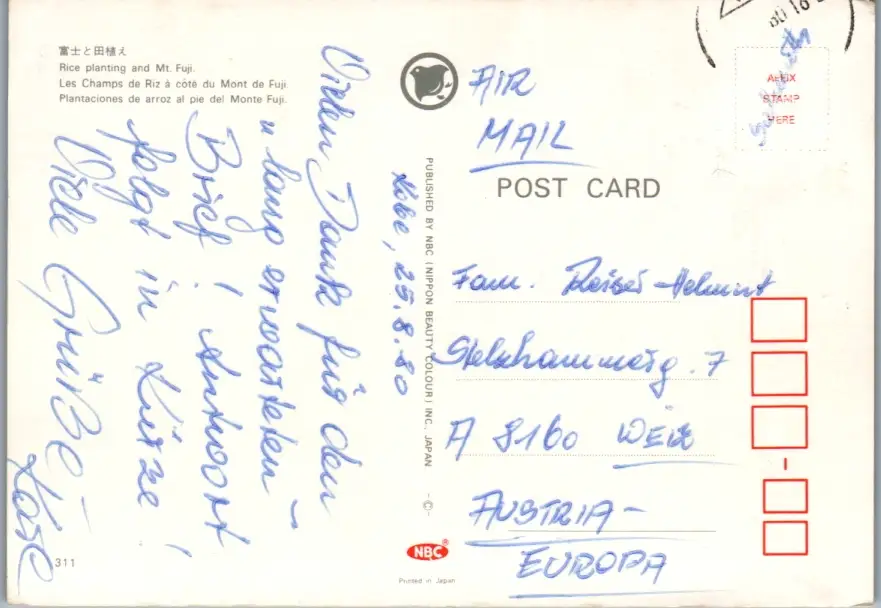 富士と田植え
Rice planting and Mt. Fuji.
Les Champs de Riz à côté du Mont de Fuji.
Plantaciones de arroz al pie del Monte Fuji.
Vielen Dank für den
"lang erwarteten"
Brief! Antwort
folgt in Kürze!
Viele Grüße
Kobe, 25.8.80
PUBLISHED BY NBC (NIPPON BEAUTY COLOUR) INC. JAPAN
311
NBC®
Printed in Japan
AIR
MAIL
POST CARD
AFFIX
STAMP
HERE
Fam. Reiser Helmut
Stelzhammerg. 7
A 8160 WEIZ
AUSTRIA-
EUROPA